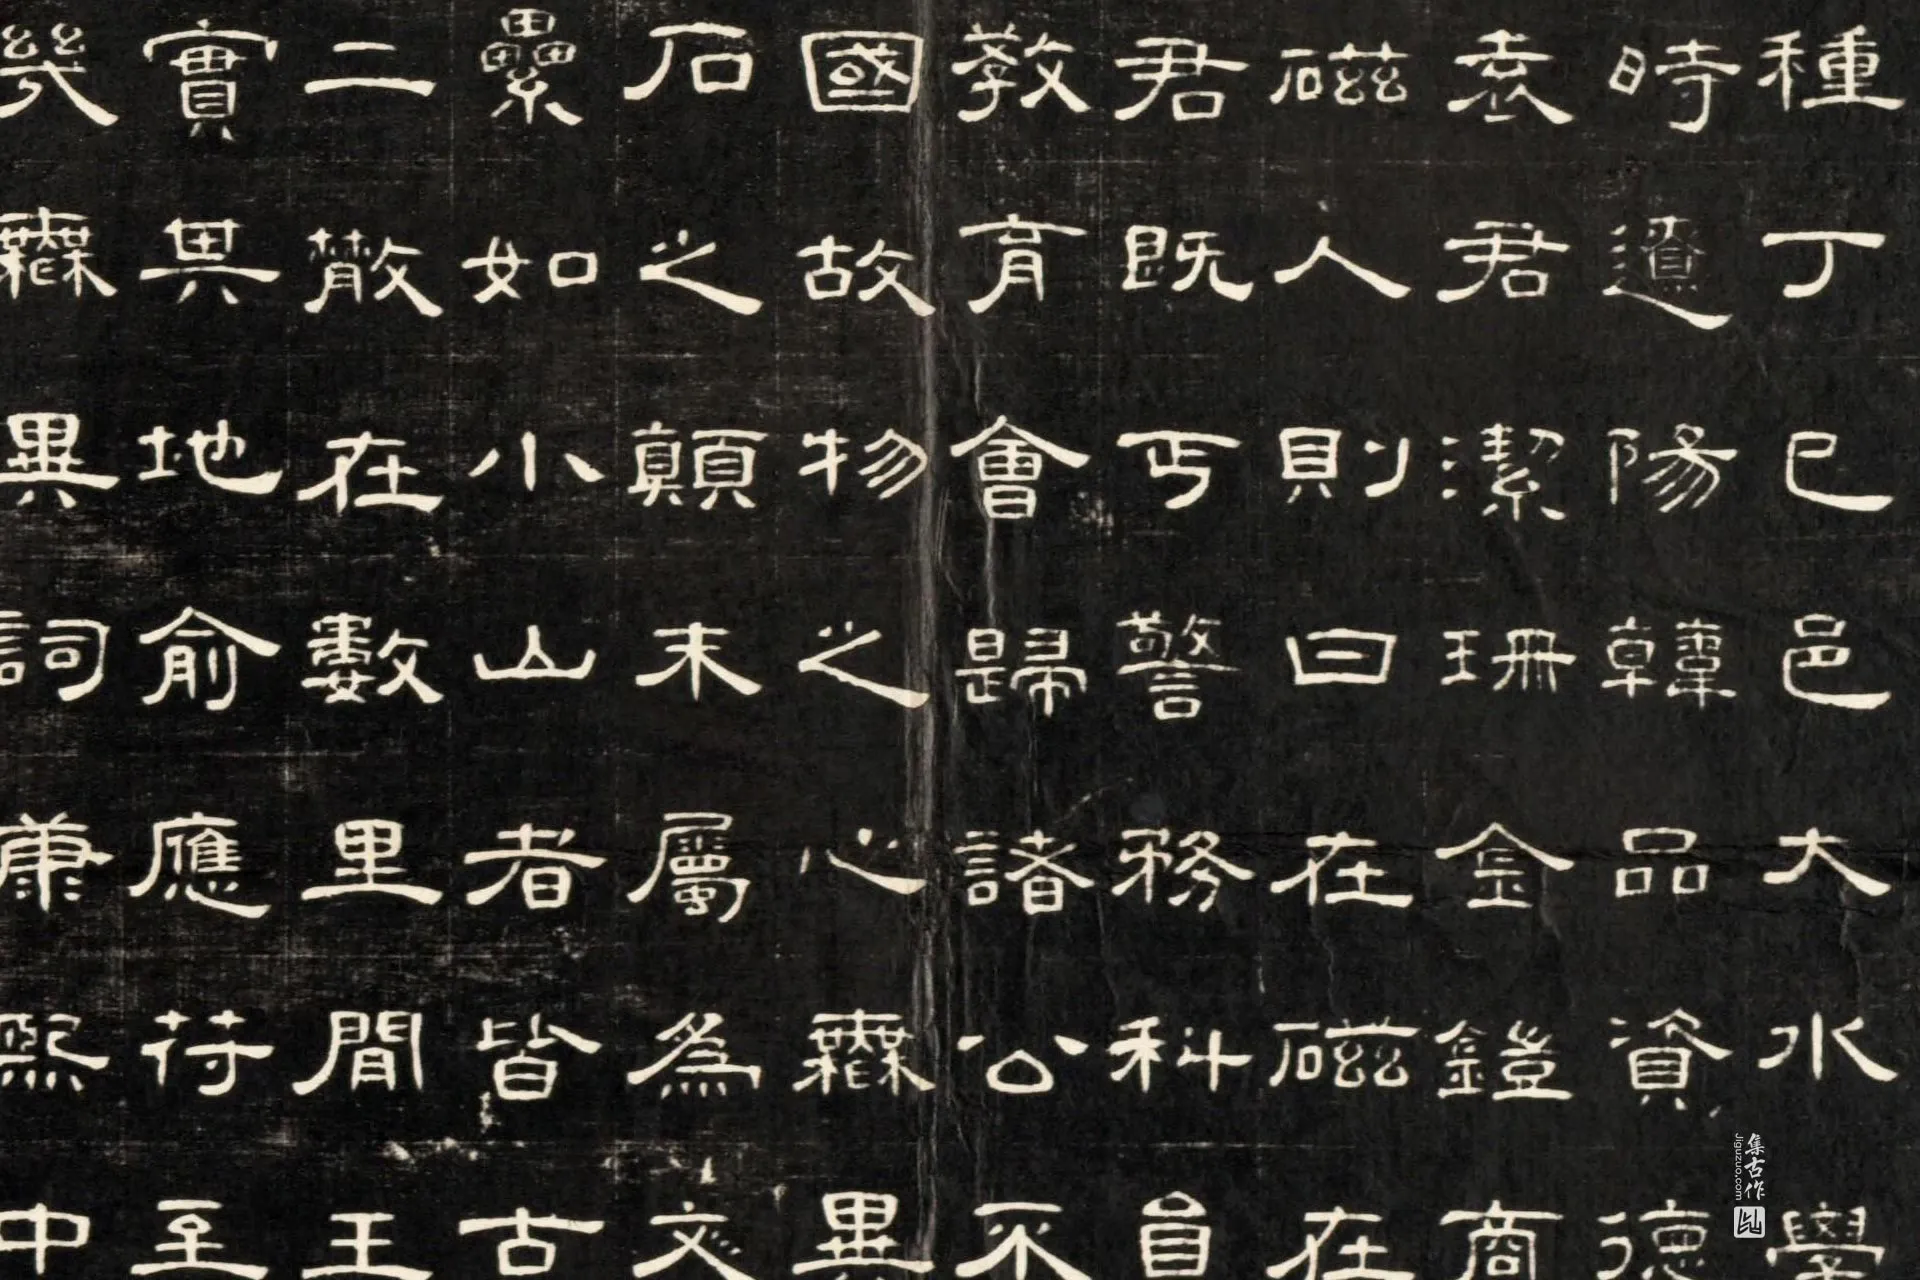 種丁巳邑大水學
時遼陽韓品資德
袁君潔珊金鎧商
磁人則曰在磁在
君既丐警務科自
教育會歸諸公不
國故物之心無異
石之顛末屬為文
纍如小山者皆古
二散在數里間王
實其地俞應符至
幾無異詞康熙中
集古作
Jiguzuo.com